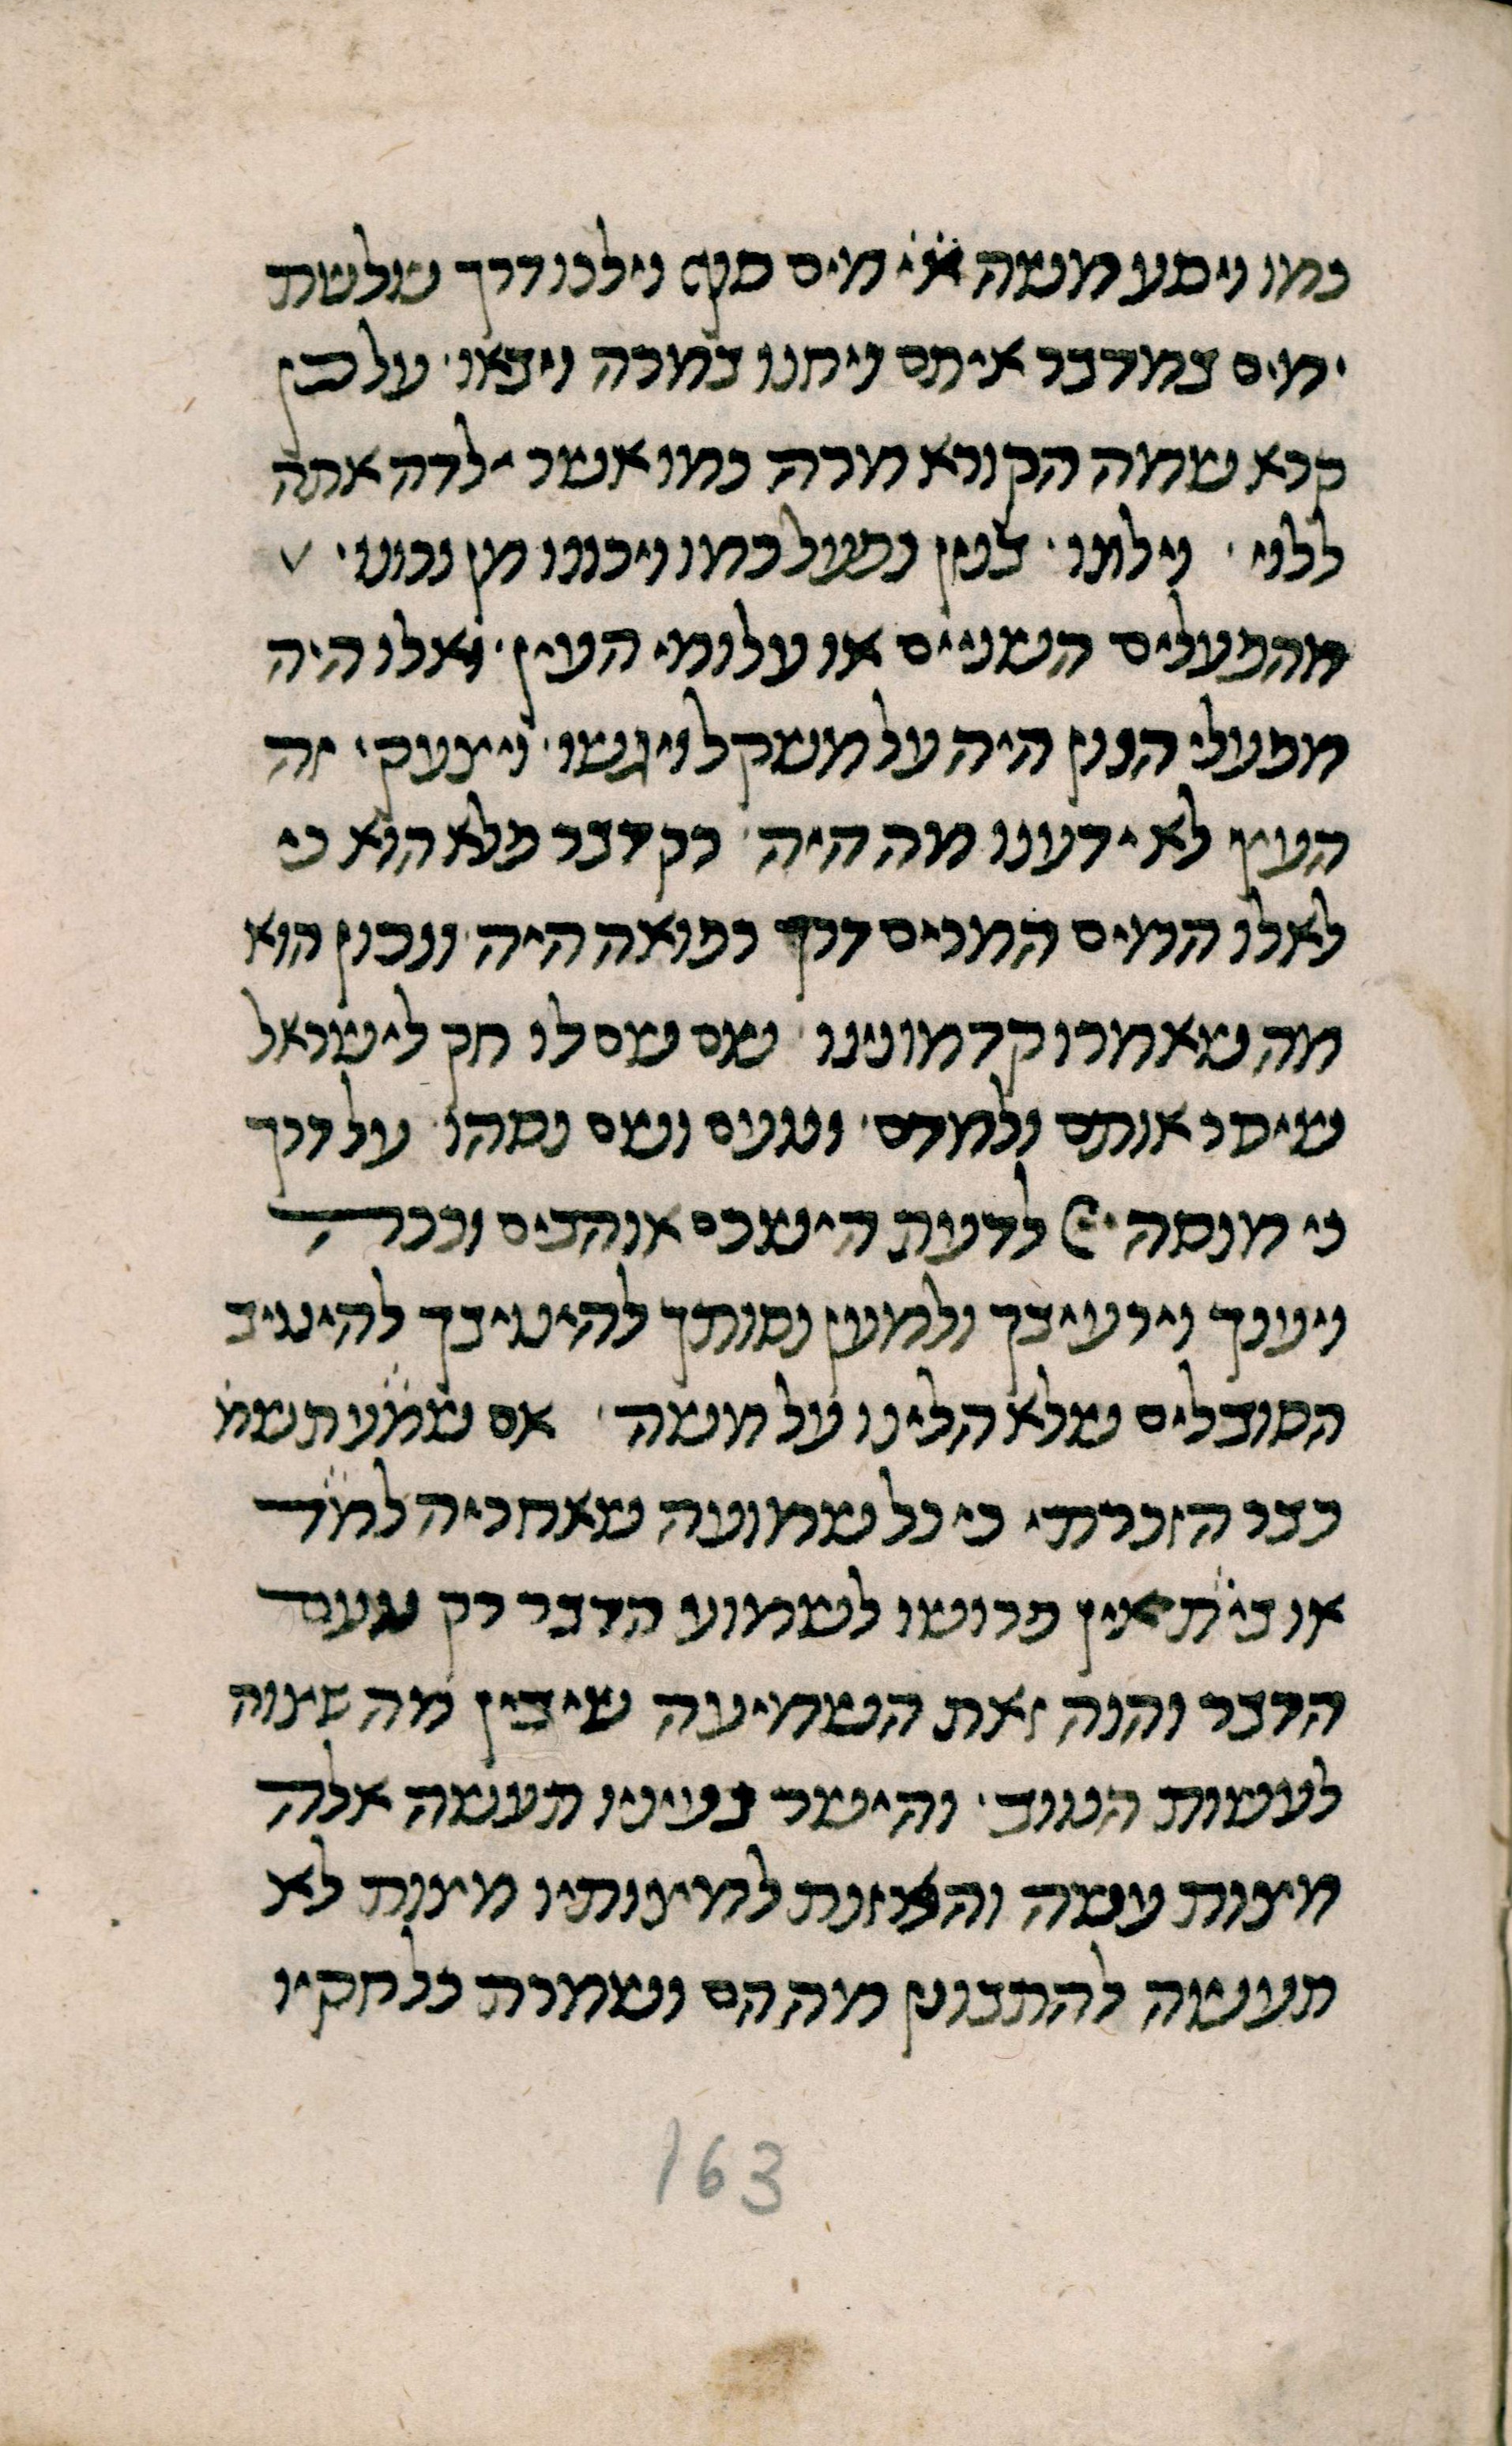 כמו ויסע משה את ישר׳ מים סוף וילכו דרך שלשת
ימים במדבר איתם ויחנו במרה ויבאו׳ על כן
קרא שמה הקורא מרה כמו אשר ילדה אתה
ללוי׳ וילנו׳ בנין נפעל כמו ויכונו מן נכון׳
מהפעלים השניים או עלומי העין׳ ואלו היה
מפעלי הנון היה על משקל ויגשו׳ ויצעק׳ זה
העץ לא ידענו מה היה׳ רק דבר פלא הוא כי
לאלו המים המרים דרך רפואה היה׳ ונכון הוא
מה שאמרו קדמונינו׳ שם שם לו חק לישראל
שיסר אותם ולמדם׳ וטעם ושם נסהו׳ על דרך
כי מנסה יי׳ לדעת הישכם אוהבים ובברה
ויענך וירעיבך ולמען נסותך להיטיבך להיטיב
הסובלים שלא הלינו על משה׳ אם שמע תשמ
כבר הזכרתי כי כל שמועה שאחריה למד
או בית אין פרושו לשמוע הדבר רק טעם
הדבר והנה זאת השמיעה שיבין מה שצוה
לעשות הטוב׳ והישר בעיניו תעשה אלה
מצות עשה והאזנת למצותיו מצות לא
תעשה להתבונן מה הם ושמרת כל חקיו
163